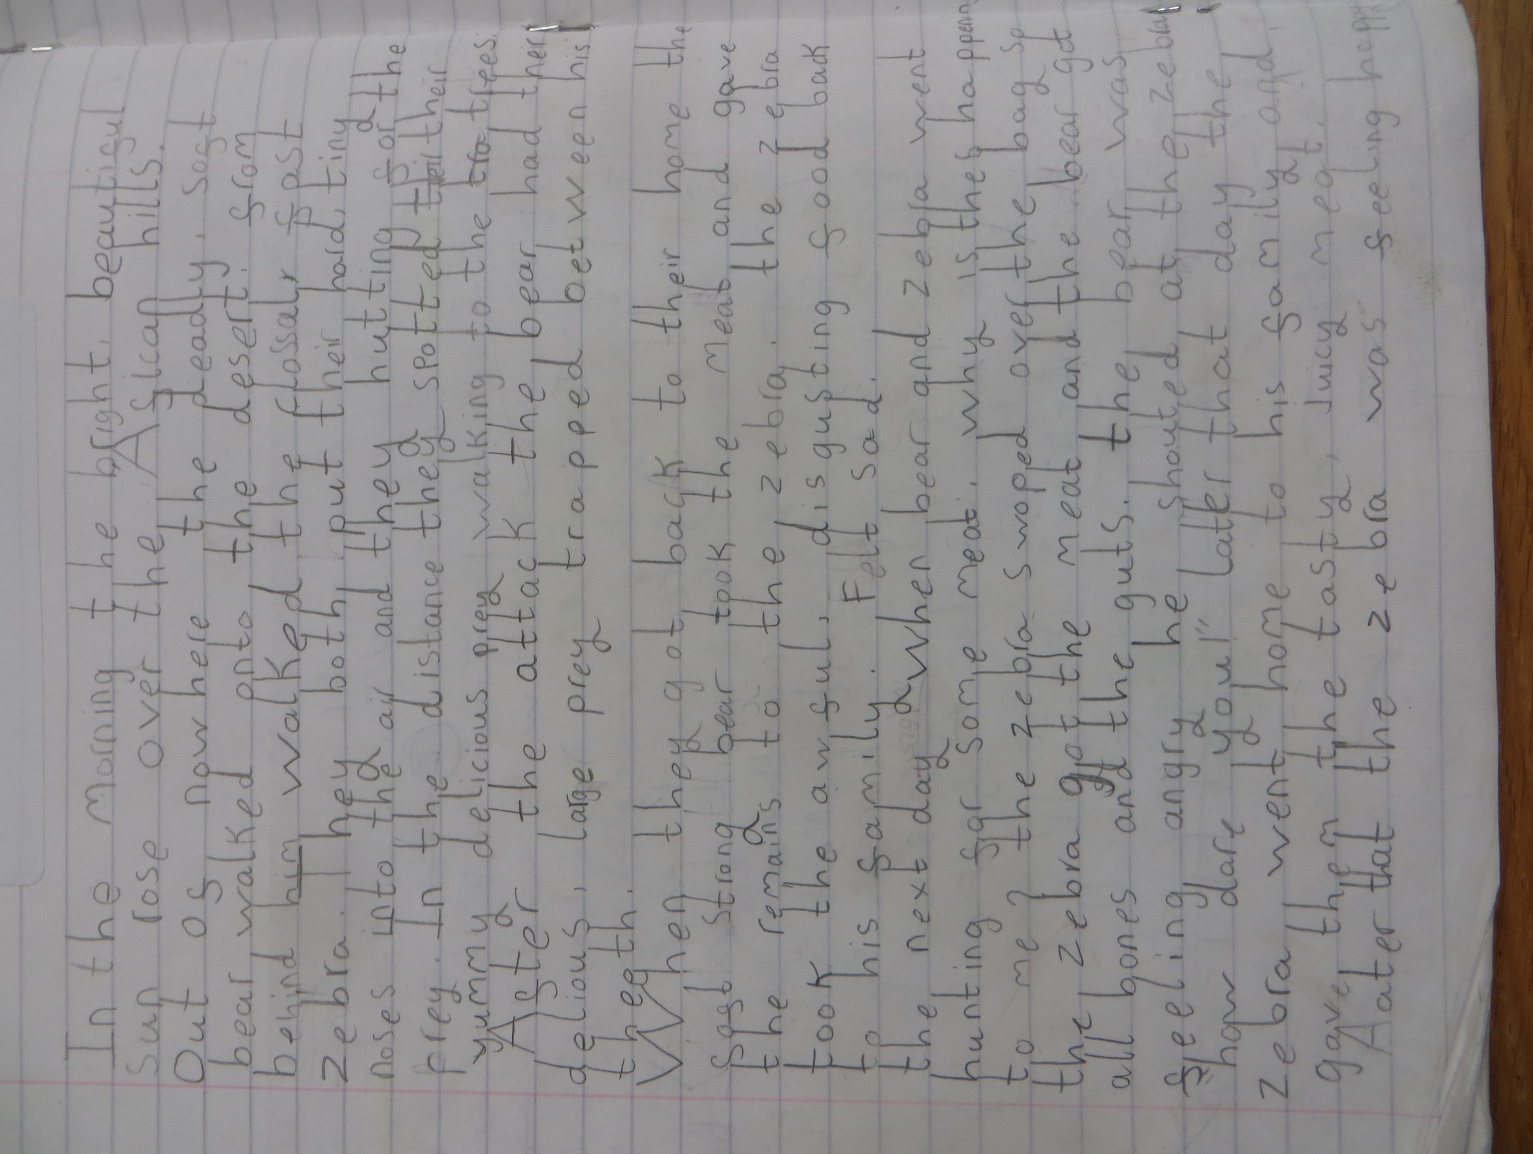 In the morning the bright, beautigul
sun rose over the Agican hills.
Out og nowhere the deadly, sogt
bear walked onto the desert. grom
behind him walked the flossaly fast
zebra. They both put their hard, tiny
noses into the air and they hutting for the
prey. In the distance they spotted their their
yummy delicious prey walking to the tra trees.
Agter the attack the bear had ther
delious, large prey trapped between his
theeth.
When they got back to their home the
gast strong bear took the meat and gave
the remains to the zebra. the zebra
took the awgul, disgusting good back
to his gamily. Felt sad.
the next day when bear and zebra went
hunting gor some meat. why is thes happening
to me? the zebra swoped over the bag so
the zebra got the meat and the bear got
all bones and the guts. the bear was
geeling angry he shouted at the zebra
"how dare you!" later that day the
zebra went home to his gamily and
gave them the tasty, juicy meat.
Aater that the zebra was geeling happy